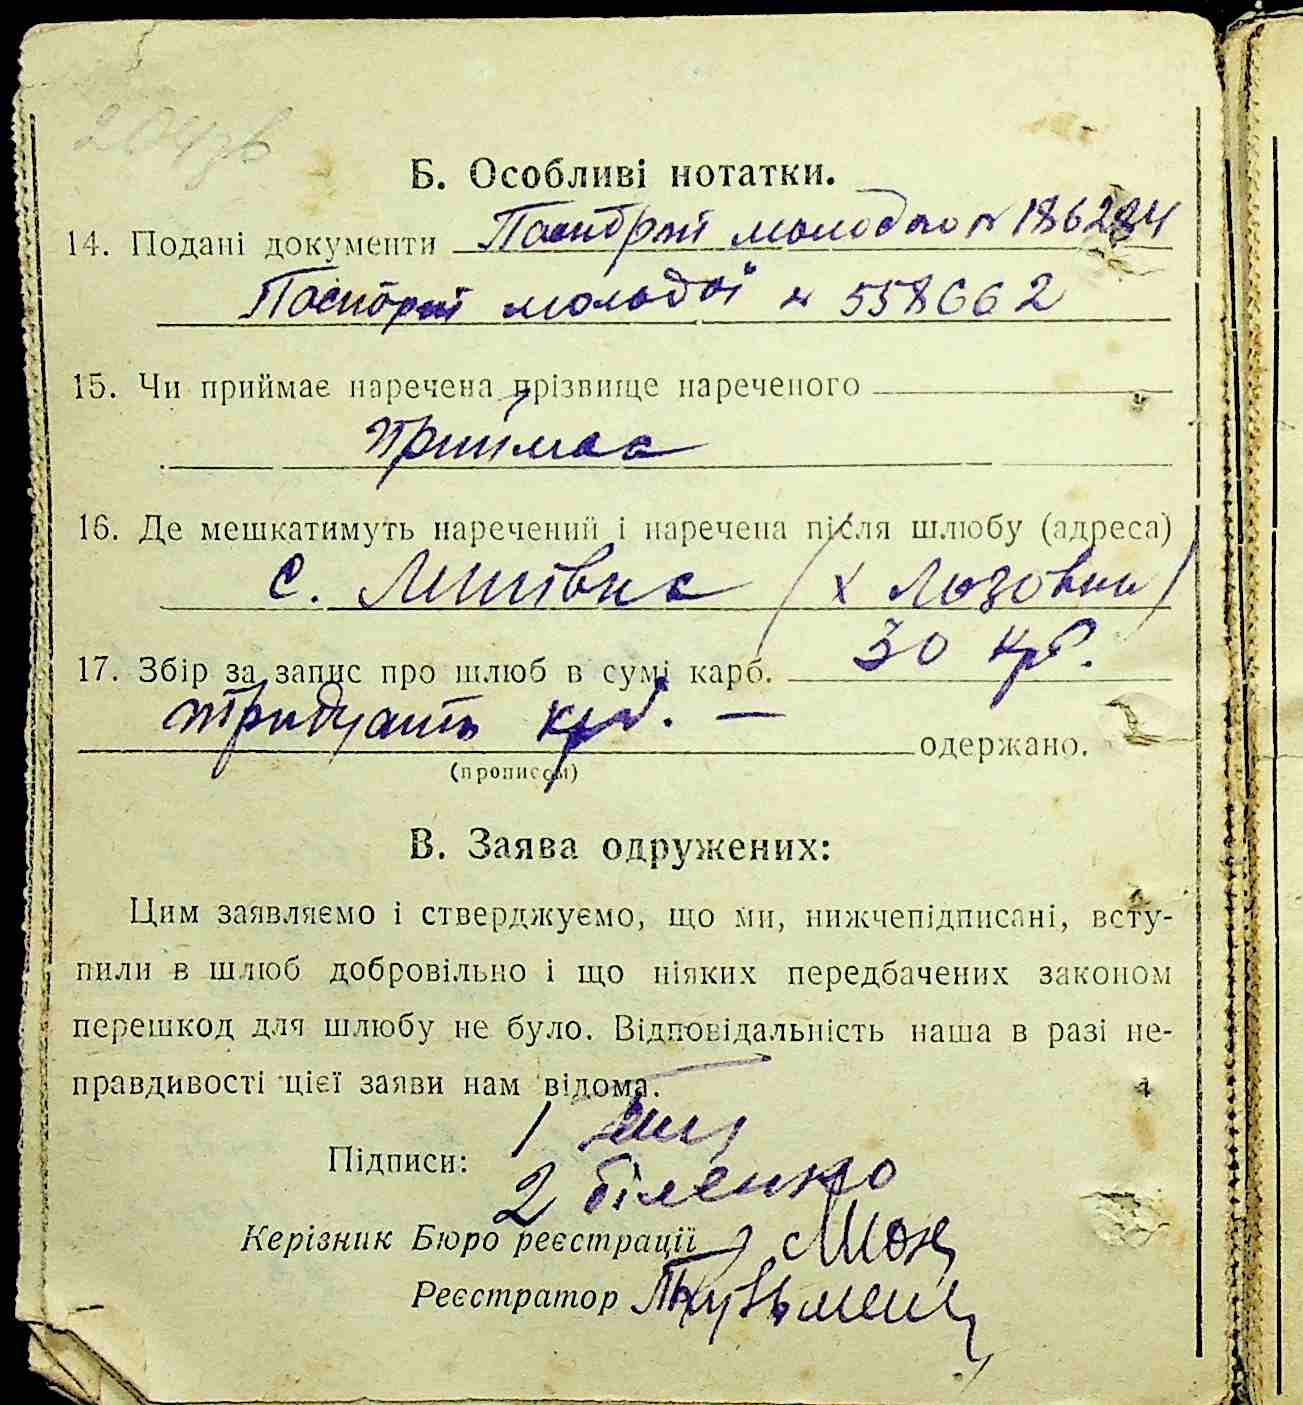 204зв
Б. Особливі нотатки.
14. Подані документи Паспорт молодого № 186294
Паспорт молодої № 558662
15. Чи приймає наречена прізвище нареченого
приймає
16. Де мешкатимуть наречений і наречена після шлюбу (адреса)
с. Липівка (х Лозовий)
17. Збір за запис про шлюб в сумі карб. 30 крб.
тридцать крб. — одержано.
(прописом)
В. Заява одружених:
Цим заявляємо і стверджуємо, що ми, нижчепідписані, всту-
пили в шлюб добровільно і що ніяких передбачених законом
перешкод для шлюбу не було. Відповідальність наша в разі не-
правдивості цієї заяви нам відома.
1
Підписи:
2 Біленко
Керізник Бюро реєстрації
Реєстратор